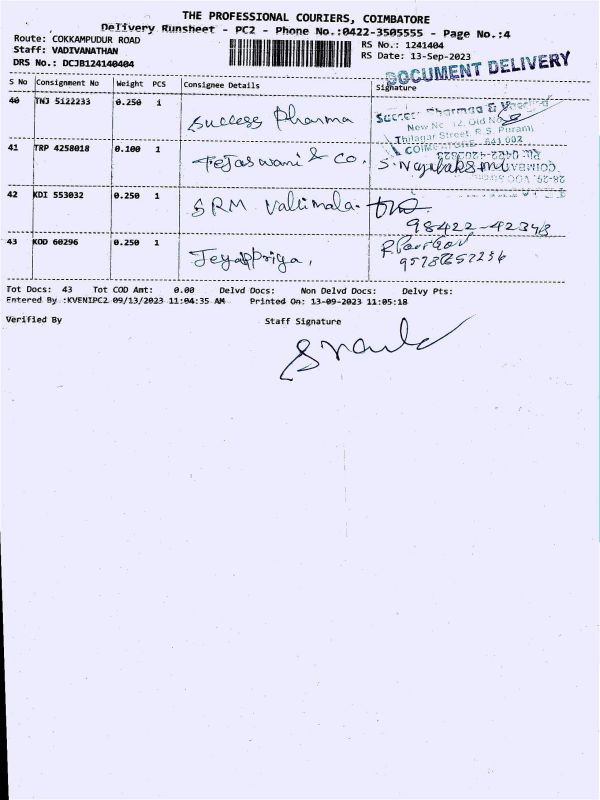 THE PROFESSIONAL COURIERS, COIMBATORE
Delivery Runsheet - PC2 - Phone No.:0422-3505555 - Page No.:4
Route: COKKAMPUDUR ROAD
Staff: VADIVANATHAN
DRS No.: DCJB124140404
RS No.: 1241404
RS Date: 13-Sep-2023
DOCUMENT DELIVERY
S No Consignment No Weight PCS Consignee Details Signature
40 TNJ 5122233 0.250 1 Success Pharma
Thilagar Street, R.S. Puram,
COIMBATORE - 641 002
41 TRP 4258018 0.100 1 Tejaswani & Co.
42 KDI 553032 0.250 1 SRM Vallimala.
98422-42343
43 KOD 60296 0.250 1 Jeyappriya,
Tot Docs: 43 Tot COD Amt: 0.00 Delvd Docs: Non Delvd Docs: Delvy Pts:
Entered By :KVENIPC2 09/13/2023 11:04:35 AM Printed On: 13-09-2023 11:05:18
Verified By Staff Signature